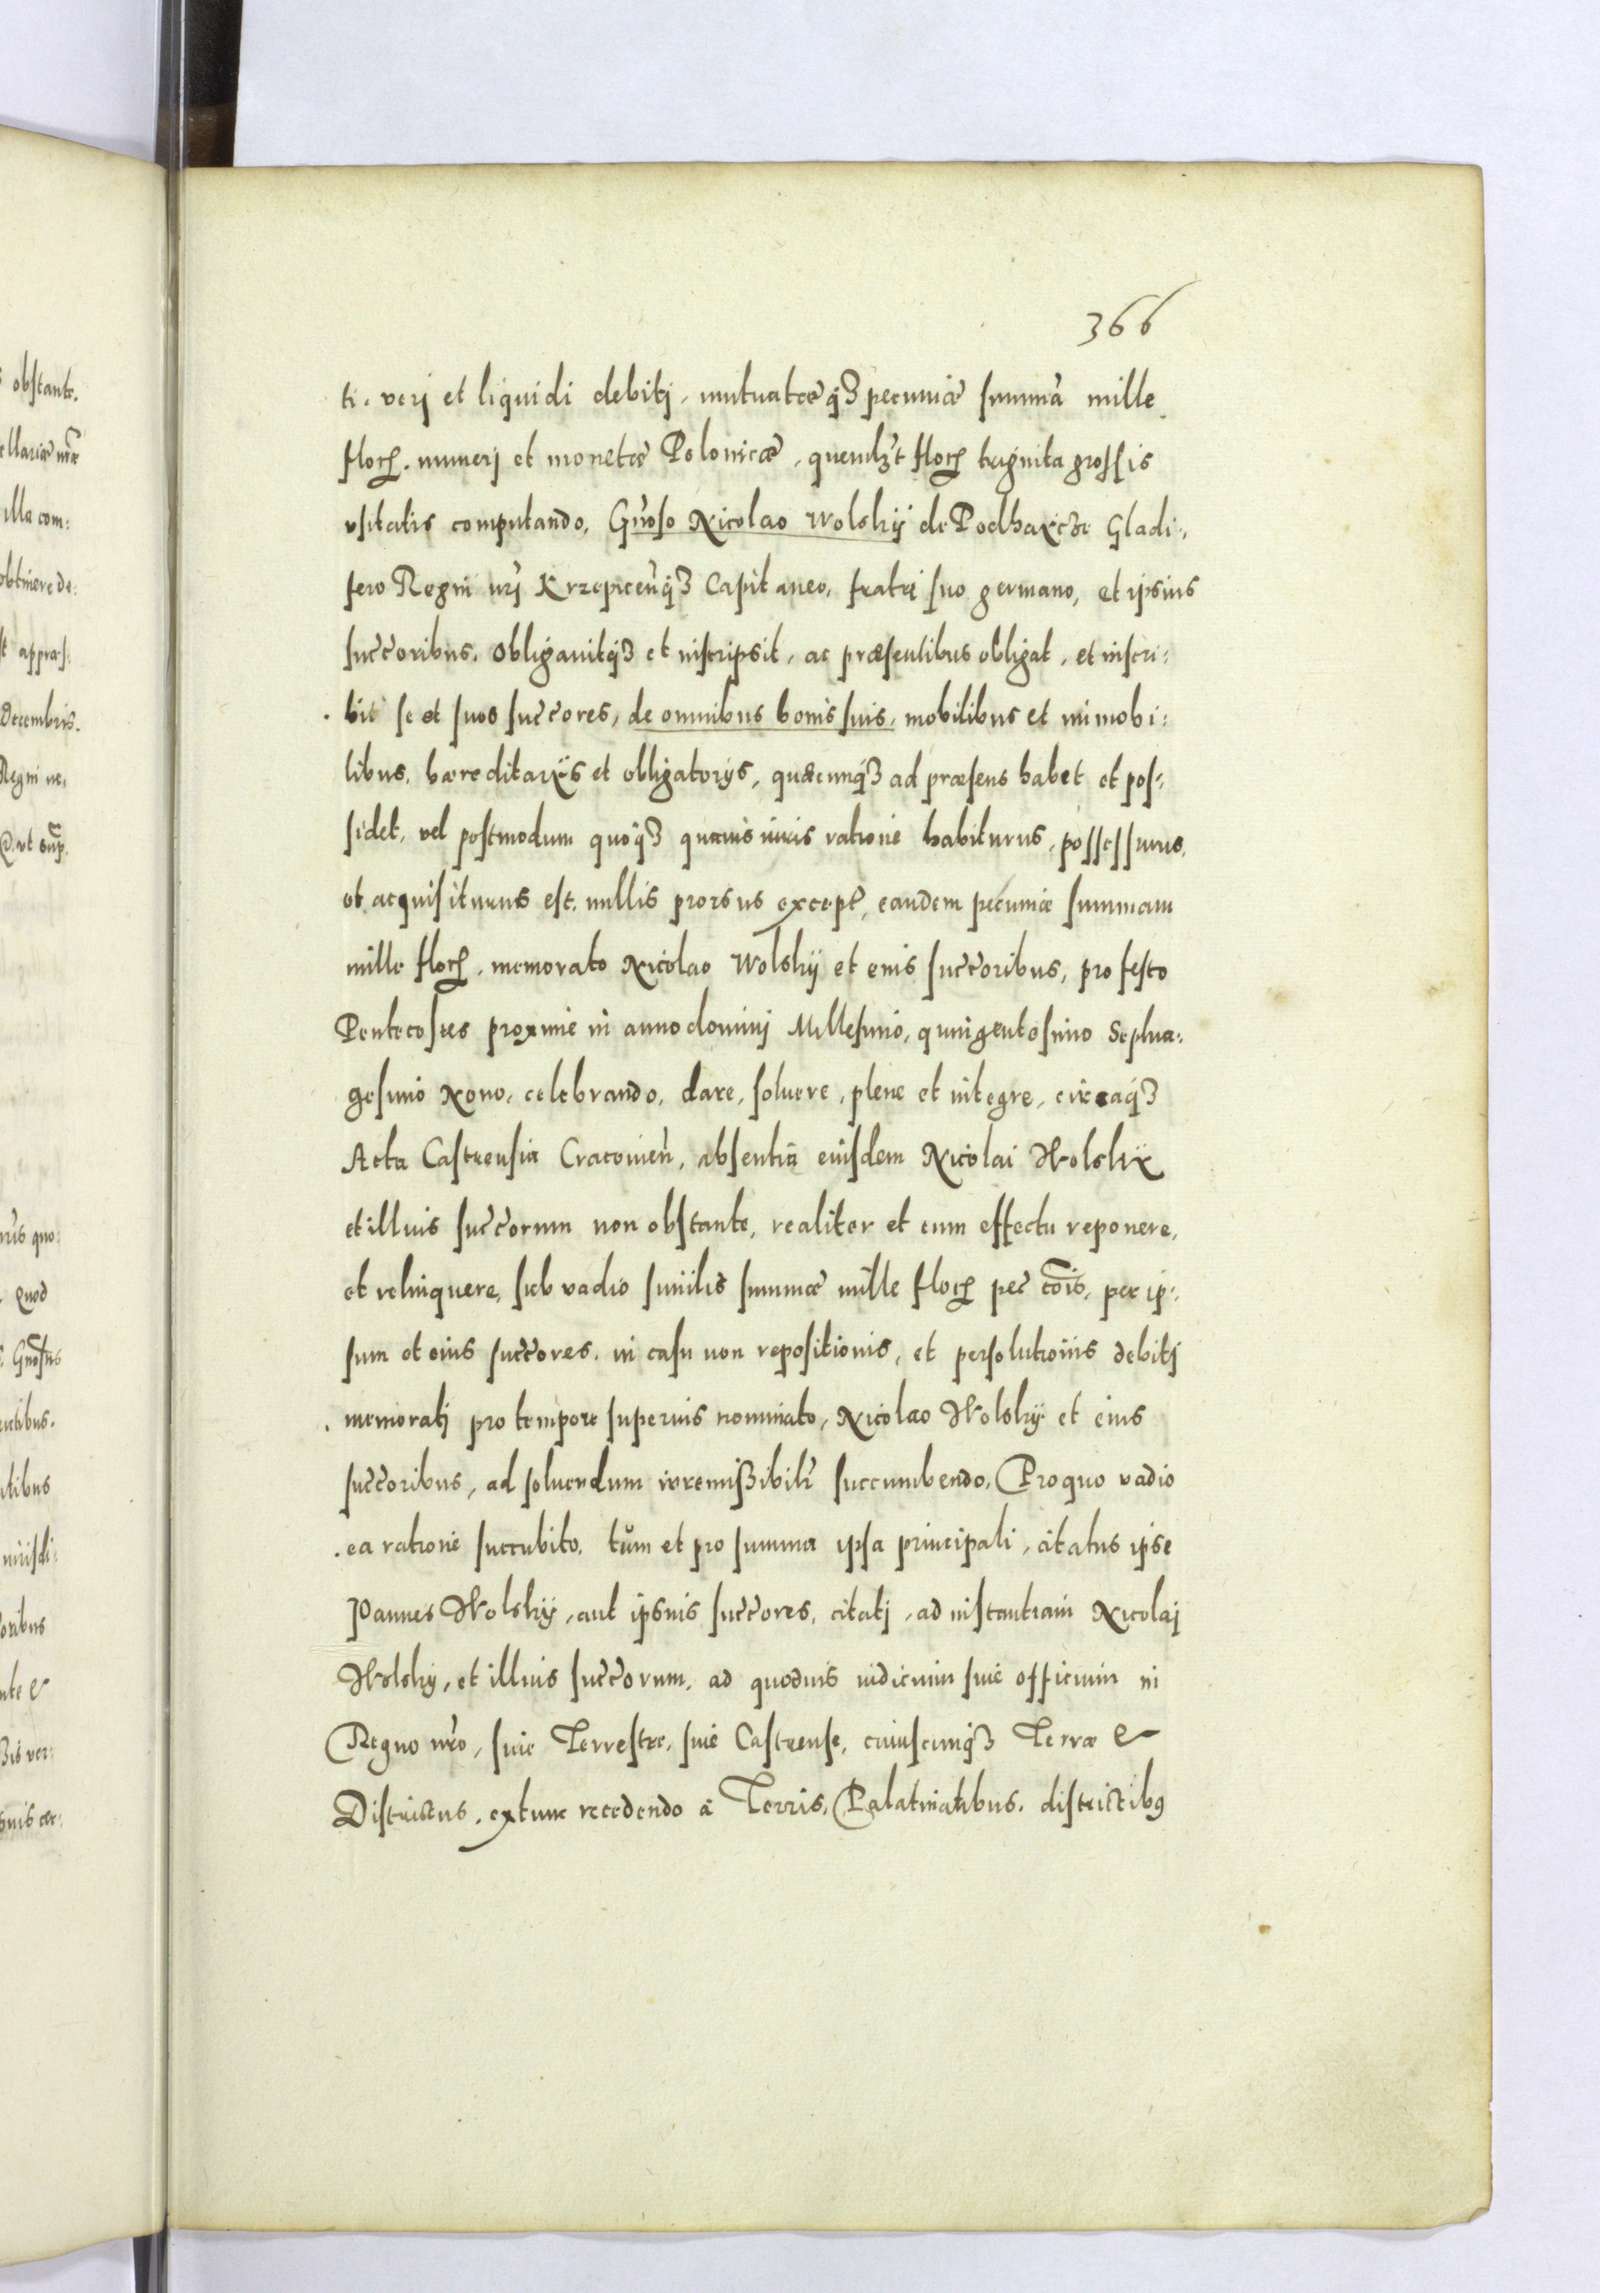 366
ti. verj et liquidi debitj, mutuatæq3 pecuniæ summã mille
floreñ. numerj et monetæ Polonicæ, quemlꝫt floreñ triginta grossis
vsitatis computando, Gñoso Nicolao Wolskÿ de Podhaycze Gladi:
fero Regni nrj Krzepiceñq3 Capitaneo, fratri suo germano, et ipsius
succoribus. Obligauitq3 et inscripsit, ac præsentibus obligat, et inscri:
bit se et suos succores, de omnibus bonis suis, mobilibus et immobi:
libus, hæreditarÿs et obligatorÿs, quæcunq3 ad præsens habet et pos:
sidet, vel postmodum quoq3 quauis iuris ratione habiturus, possessurus,
et acquisiturus est, nullis prorsus except, eandem pecuniæ summam
mille floreñ, memorato Nicolao Wolskÿ et eius succoribus, pro festo
Pentecostes proxime in anno dominj Millesimo, quingentesimo Septua:
gesimo Nono, celebrando, dare, soluere, plene et integre, circaq3
Acta Castrensia Cracouieñ, absentia eiusdem Nicolai Wolskÿ
et illius succorum non obstante, realiter et cum effectu reponere,
et relinquere, sub vadio similis summæ mille floreñ pec cõis, per ip:
sum et eius succores, in casu non repositionis, et persolutionis debitj
memoratj pro tempore superius nominato, Nicolao Wolskÿ et eius
succoribus, ad soluendum irremißibilr succumbendo, Pro quo vadio
ea ratione succubito, tum et pro summa ipsa principali, citatus ipse
Joannes Wolskÿ, aut ipsius succores, citatj, ad instantiam Nicolaj
Wolskÿ, et illius succorum, ad quoduis iudicium siue officium in
Regno nro, siue Terrestre, siue Castrense, cuiuscunq3 Terræ &
Districtus, extunc recedendo à Terris, Palatinatibus, districtibꝰ
obstante.
illa com:
obtinere de:
Decembris.
Regni
Quod
Gnosus